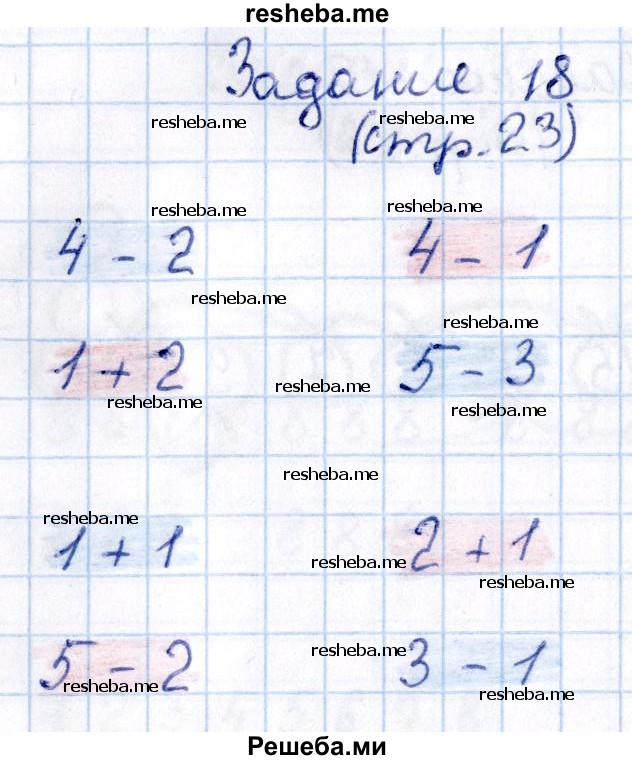 resheba.me
Задание 18
resheba.me resheba.me
(стр. 23)
resheba.me resheba.me
4 - 2 4 - 1
resheba.me
resheba.me
1 + 2 5 - 3
resheba.me
resheba.me resheba.me
resheba.me
resheba.me
1 + 1 2 + 1
resheba.me
resheba.me
resheba.me
5 - 2 3 - 1
resheba.me resheba.me
Решеба.ми